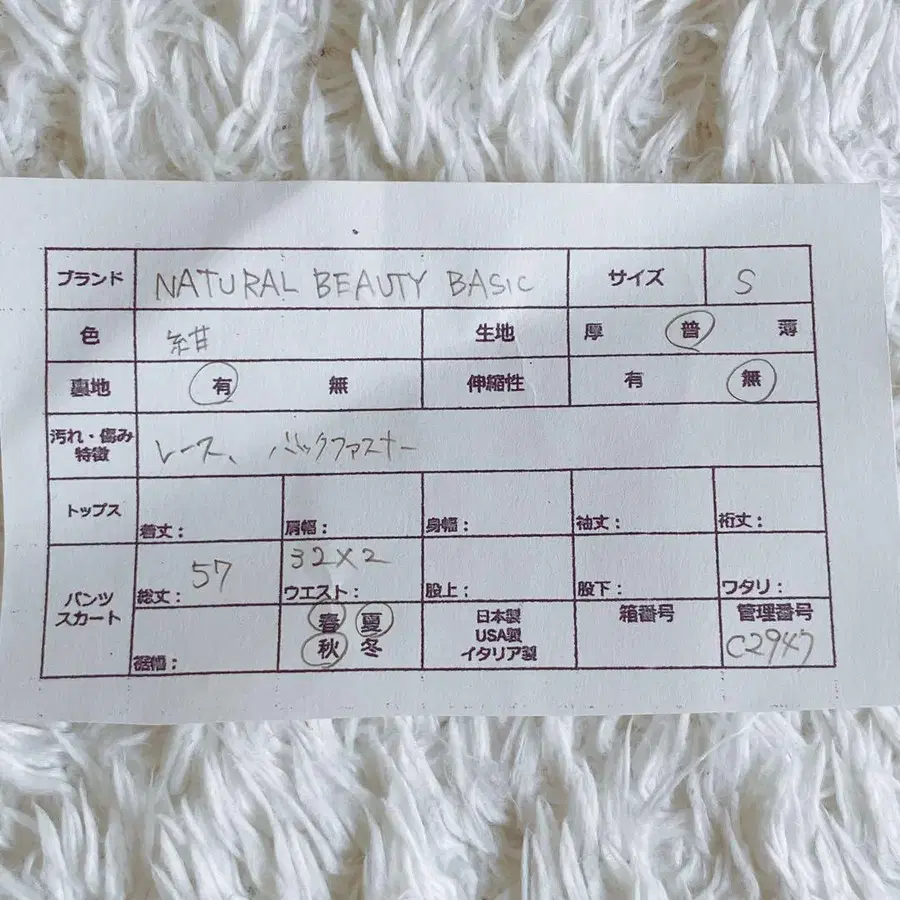 ブランド NATURAL BEAUTY BASIC サイズ S
色 紺 生地 厚 普 薄
裏地 有 無 伸縮性 有 無
汚れ・傷み
特徴 レース、バックファスナー
トップス 着丈: 肩幅: 身幅: 袖丈: 裄丈:
パンツ
スカート 総丈: 57 ウエスト: 32×2 股上: 股下: ワタリ:
裾幅: 春 夏
秋 冬
日本製
USA製
イタリア製
箱番号
管理番号
C2947